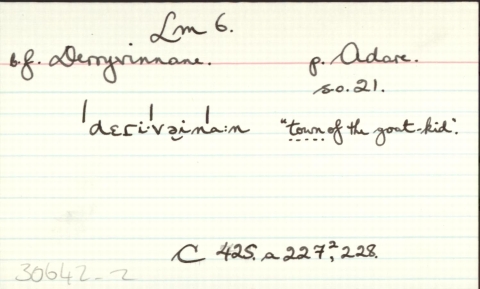 Lm 6.
b.f. Derryvinnane. p. Adare.
s.o. 21.
ˈdɛriːˈvəinˈaːn "town of the goat-kid".
C 425. a 227², 228.
30642-2